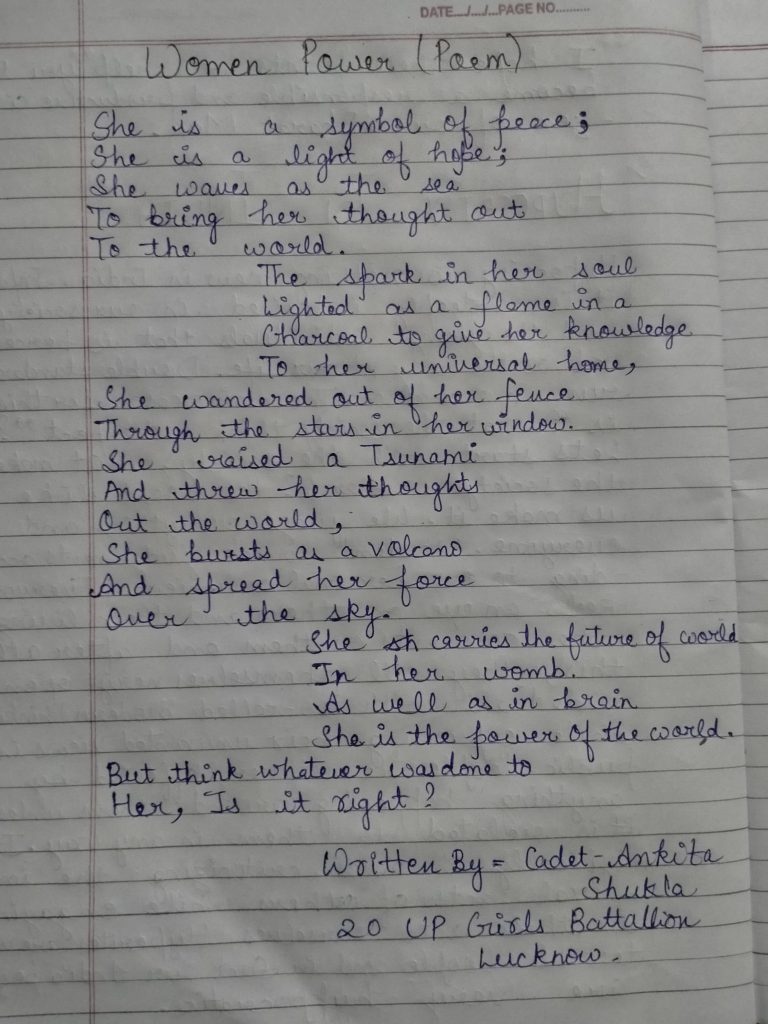 DATE__/__/__PAGE NO..........
Women Power (Poem)
She is a symbol of peace;
She is a light of hope;
She waves as the sea
To bring her thought out
To the world.
The spark in her soul
Lighted as a flame in a
Charcoal to give her knowledge
To her universal home,
She wandered out of her fence
Through the stars in her window.
She raised a Tsunami
And threw her thoughts
Out the world,
She bursts as a volcano
And spread her force
Over the sky.
She carries the future of world
In her womb.
As well as in brain
She is the power of the world.
But think whatever was done to
Her, Is it right?
Written By = Cadet-Ankita
Shukla
20 UP Girls Battallion
Lucknow.